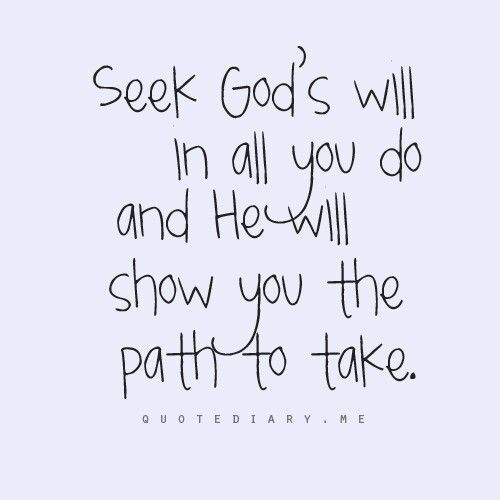 Seek God's will
in all you do
and He will
show you the
path to take.
QUOTEDIARY.ME